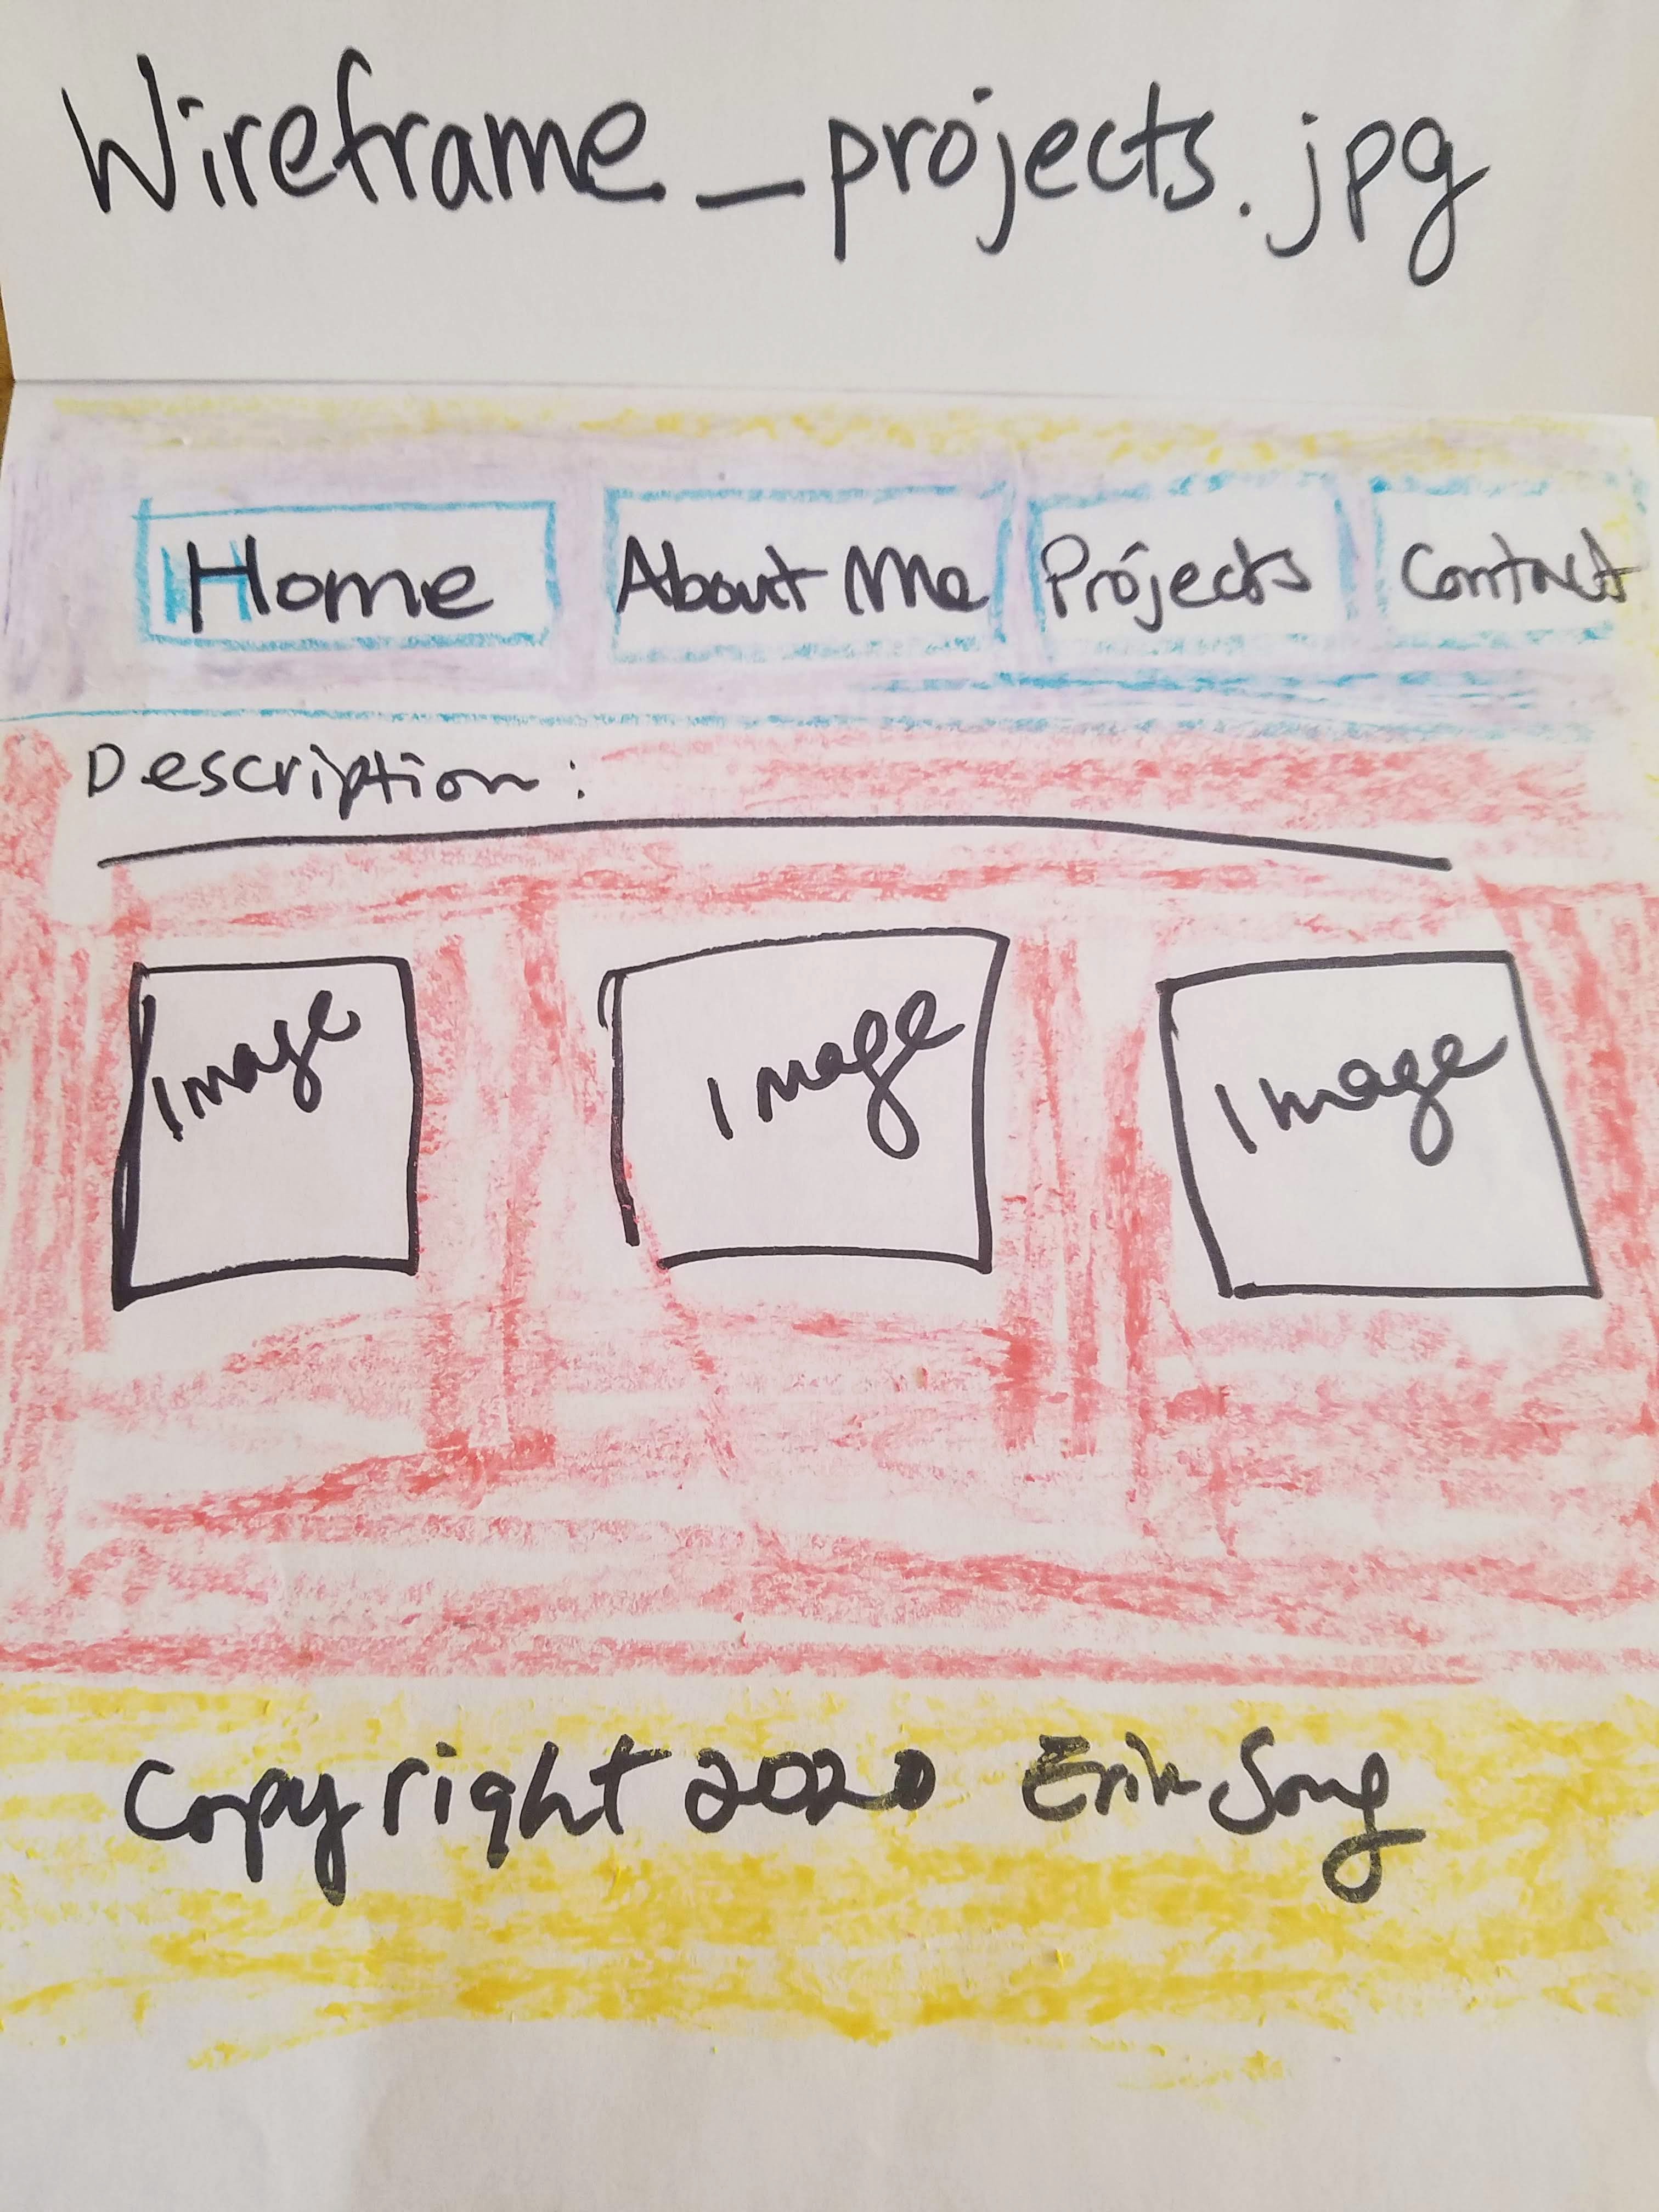 Wireframe_projects.jpg
Home About Me Projects Contact
Description:
Image Image Image
Copyright 2020 Erik Song